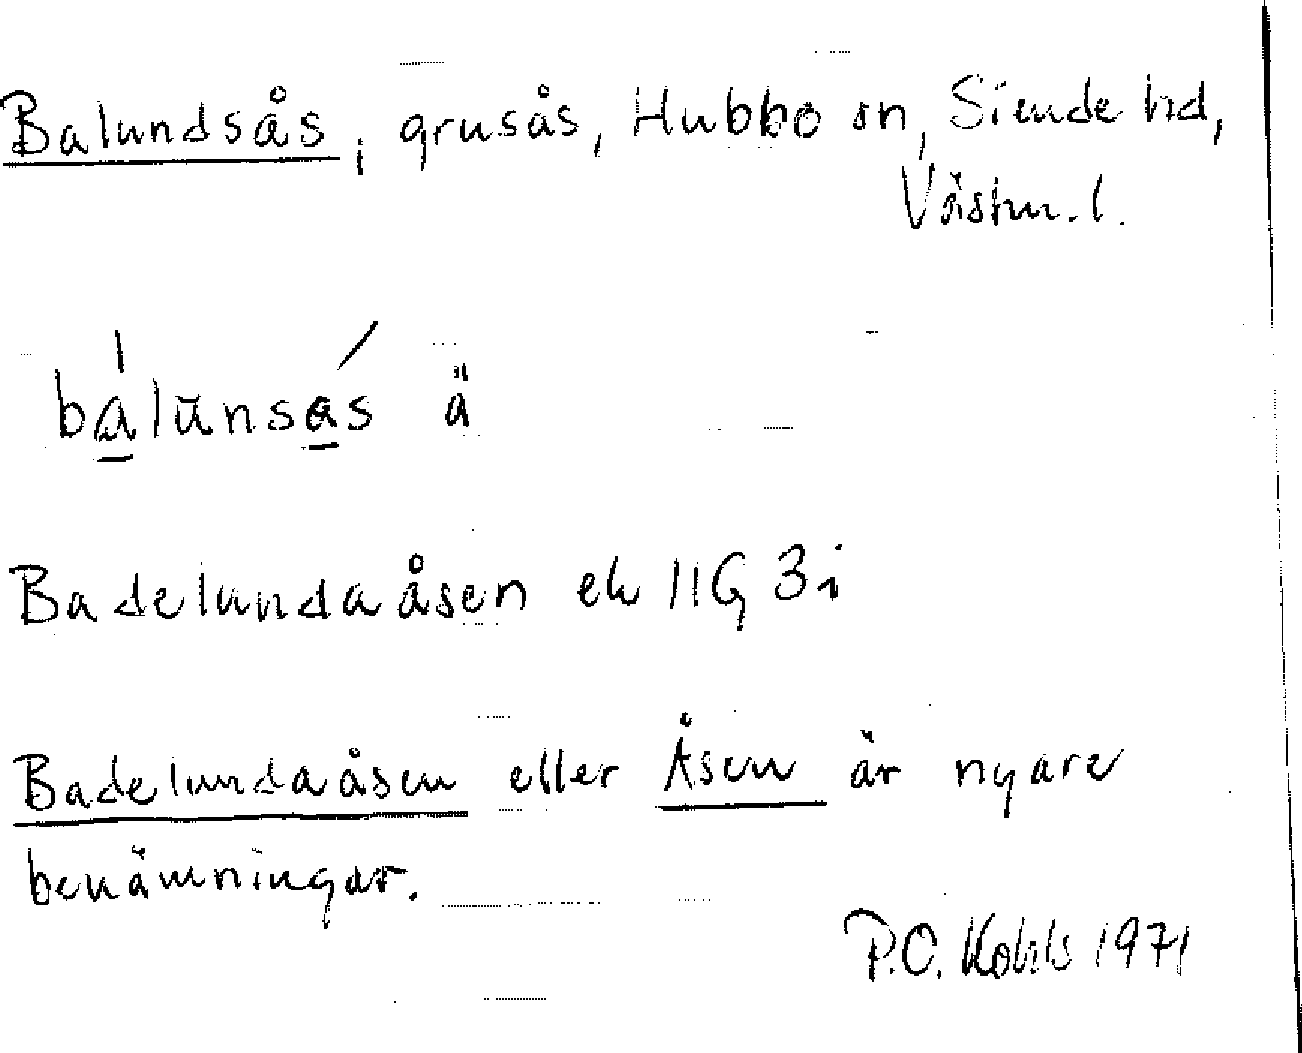 Balundsås, grusås, Hubbo sn, Siende hd,
Västm. l.
bálūnsas ä
Badelundaåsen ek 11G 3i
Badelundaåsen eller Åsen är nyare
benämningar.
P.O. 1971